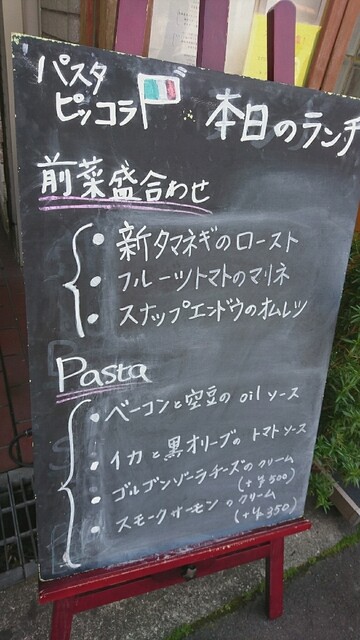 パスタ
ピッコラ
本日のランチ
前菜盛合わせ
・新タマネギのロースト
・フルーツトマトのマリネ
・スナップエンドウのオムレツ
Pasta
・ベーコンと空豆の oilソース
・イカと黒オリーブの トマトソース
・ゴルゴンゾーラチーズのクリーム
(+¥500)
・スモークサーモンのクリーム
(+¥350)